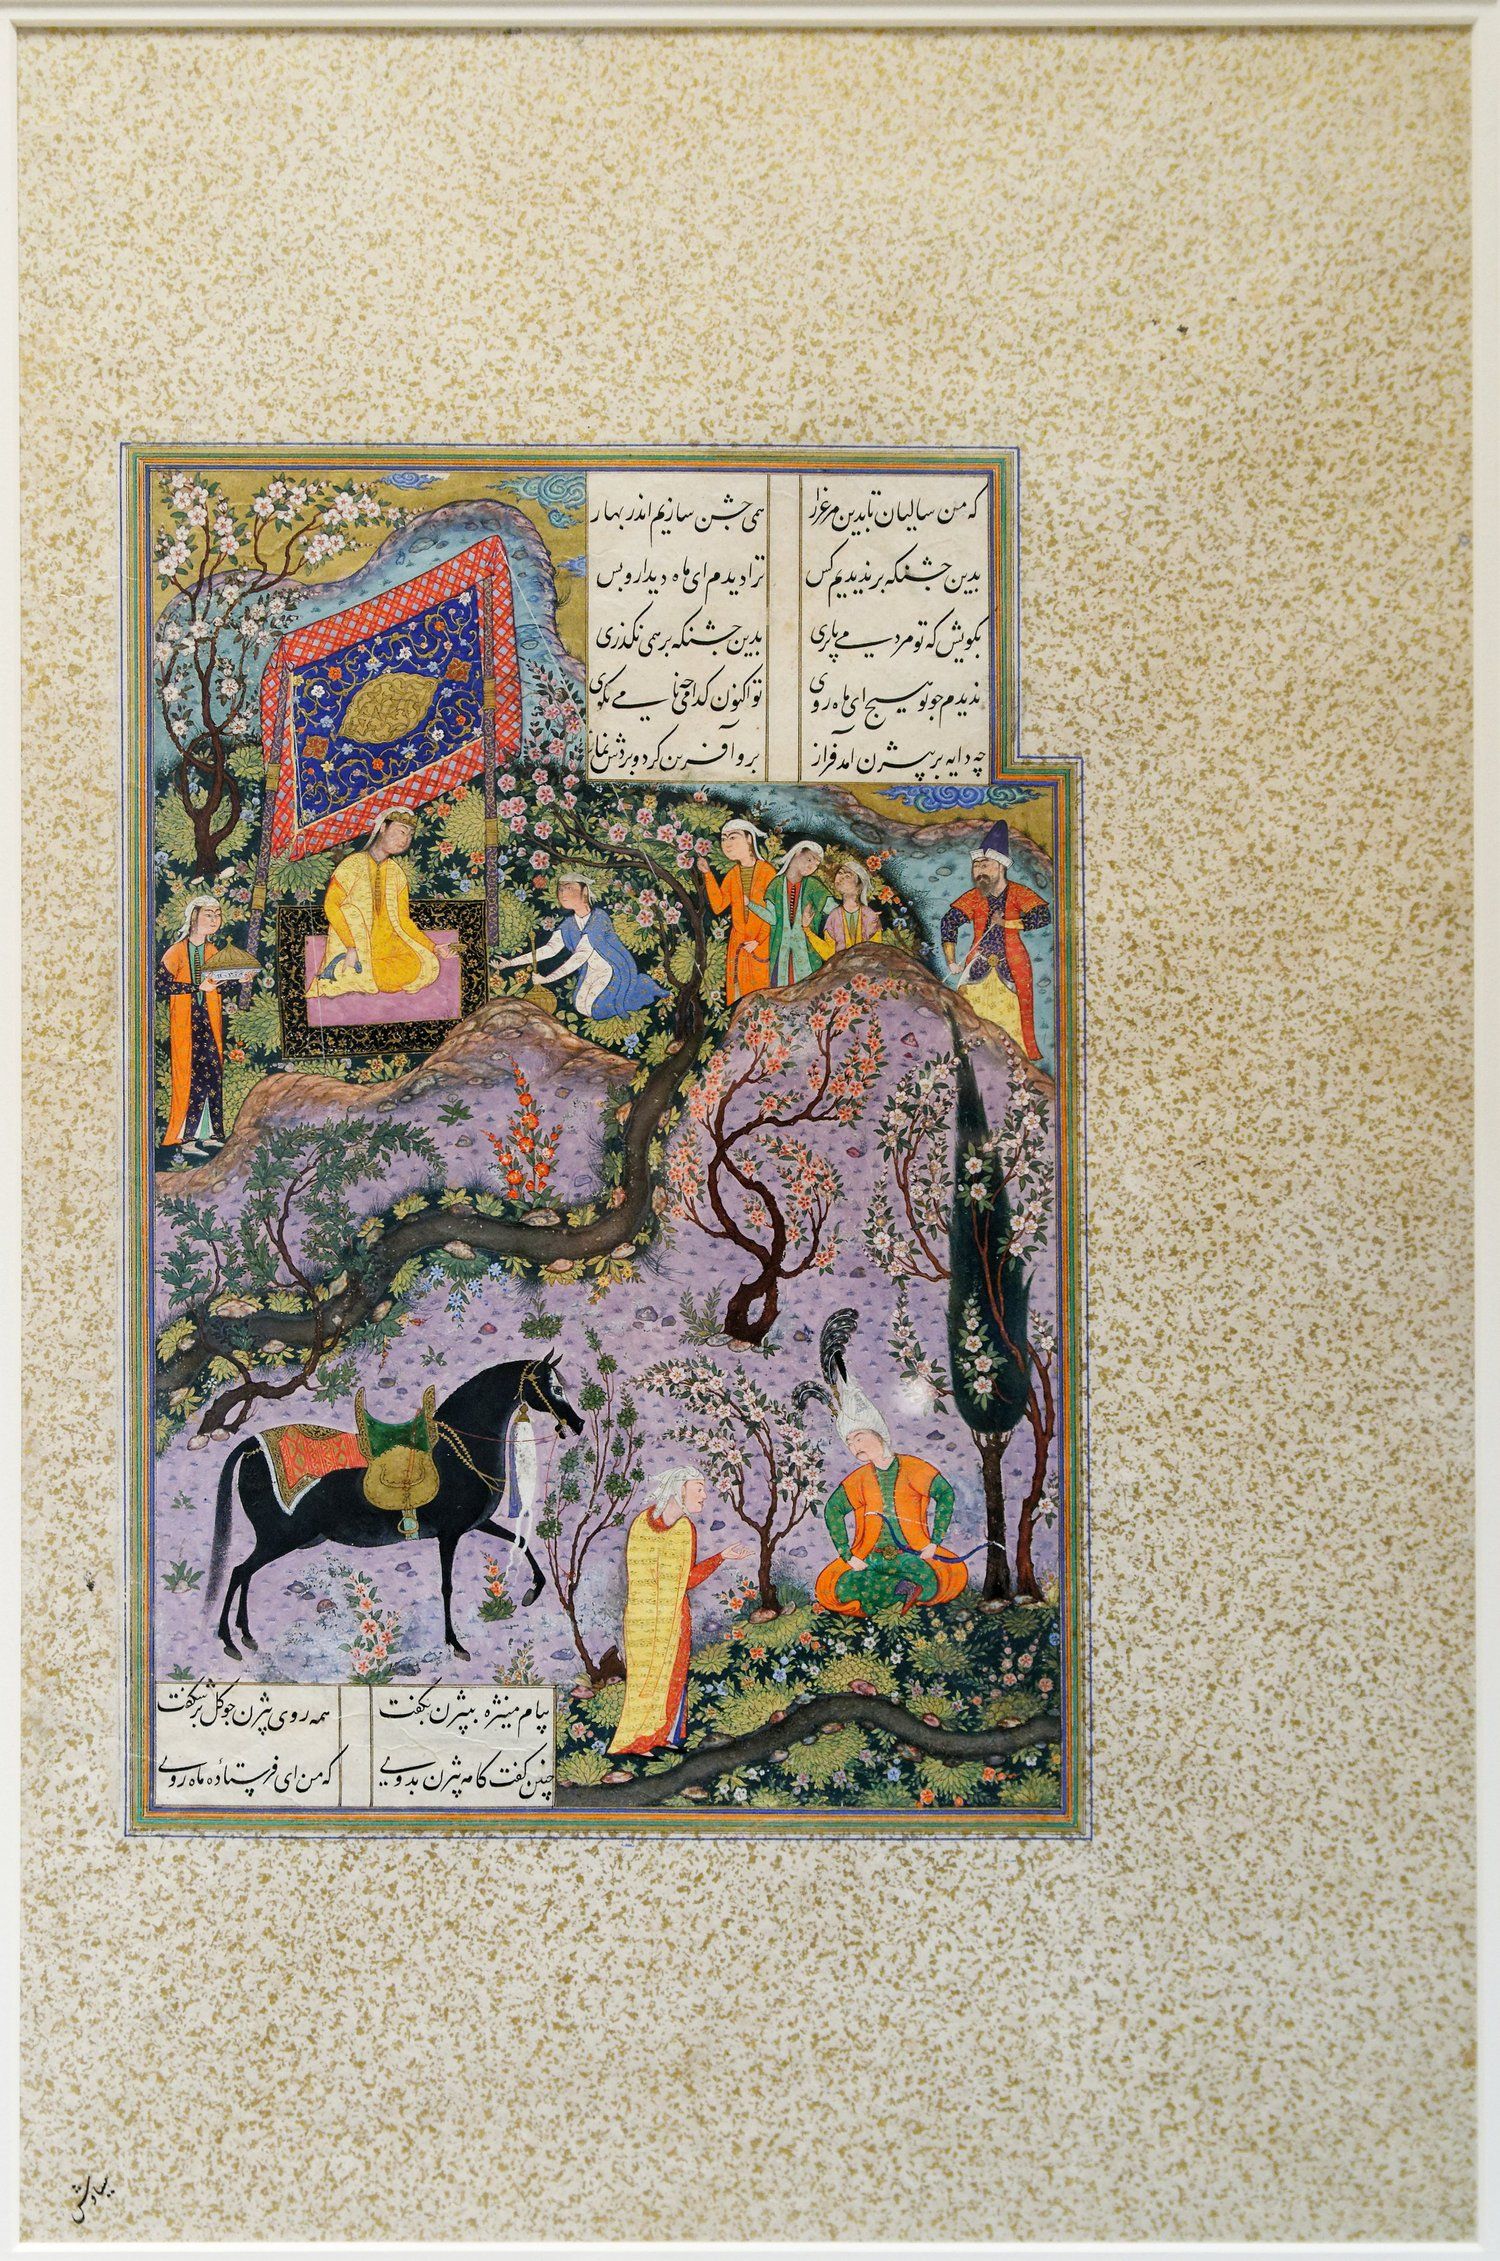 که من سالیان تا بدین مرغزار همی جشن سازیم اندر بهار
بدین جشنکه بر ندیدیم کس ترا دیدم ای ماه دیدار و بس
بکویش که تو مردمی یا پری بدین جشنکه بر همی نکذری
ندیدم جو تو هیچ ای ماه روی تو اکنون کدامی جه نامی بکوی
چه دایه بر بیژن آمد فراز برو آفرین کرد و بردش نماز
پیام منیژه ببیژن بکفت همه روی بیژن جو کل بر شکفت
چنین کفت کامه بیژن بدوی که من ای فرستاده ماه روی
سیاوش